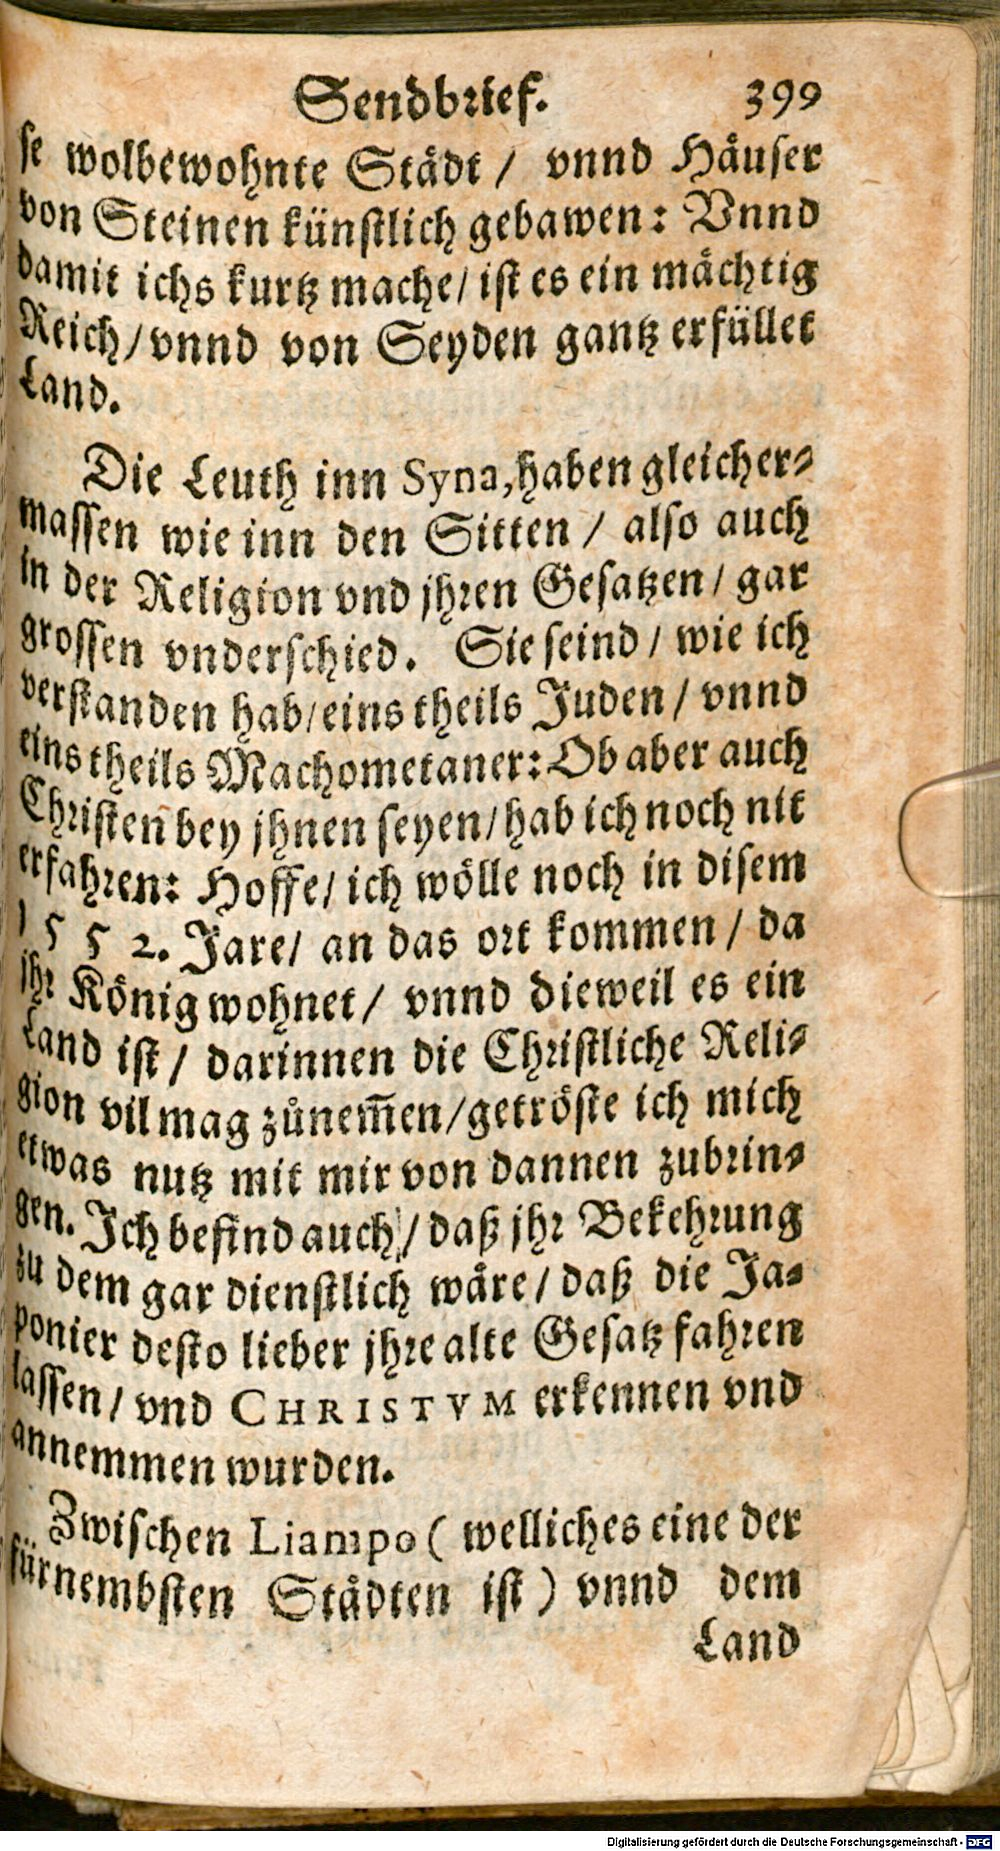 Sendbrief. 399
se wolbewohnte Städt / vnnd Häuser
von Steinen künstlich gebawen: Vnnd
damit ichs kurtz mache / ist es ein mächtig
Reich / vnnd von Seyden gantz erfüllet
Land.
Die Leuth inn Syna, haben gleicher-
massen wie inn den Sitten / also auch
in der Religion vnd jhren Gesatzen / gar
grossen vnderschied. Sie seind / wie ich
verstanden hab / eins theils Juden / vnnd
eins theils Machometaner: Ob aber auch
Christen bey jhnen seyen / hab ich noch nit
erfahren: Hoffe / ich wölle noch in disem
1552. Jare / an das ort kommen / da
jhr König wohnet / vnnd dieweil es ein
Land ist / darinnen die Christliche Reli-
gion vil mag zůnem̅en / getröste ich mich
etwas nutz mit mir von dannen zubrin-
gen. Ich befind auch / daß jhr Bekehrung
zu dem gar dienstlich wäre / daß die Ja-
ponier desto lieber jhre alte Gesatz fahren
lassen / vnd CHRISTVM erkennen vnd
annemmen wurden.
Zwischen Liampo ( welliches eine der
fürnembsten Städten ist ) vnnd dem
Land
Digitalisierung gefördert durch die Deutsche Forschungsgemeinschaft - DFG